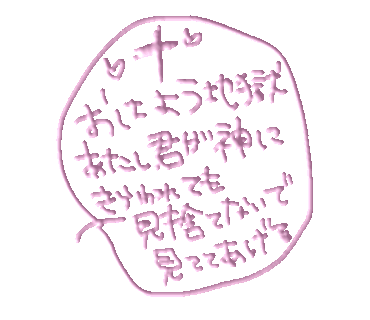 おしえよう地獄
あたし君が神に
きらわれても
見捨てないで
見ててあげる